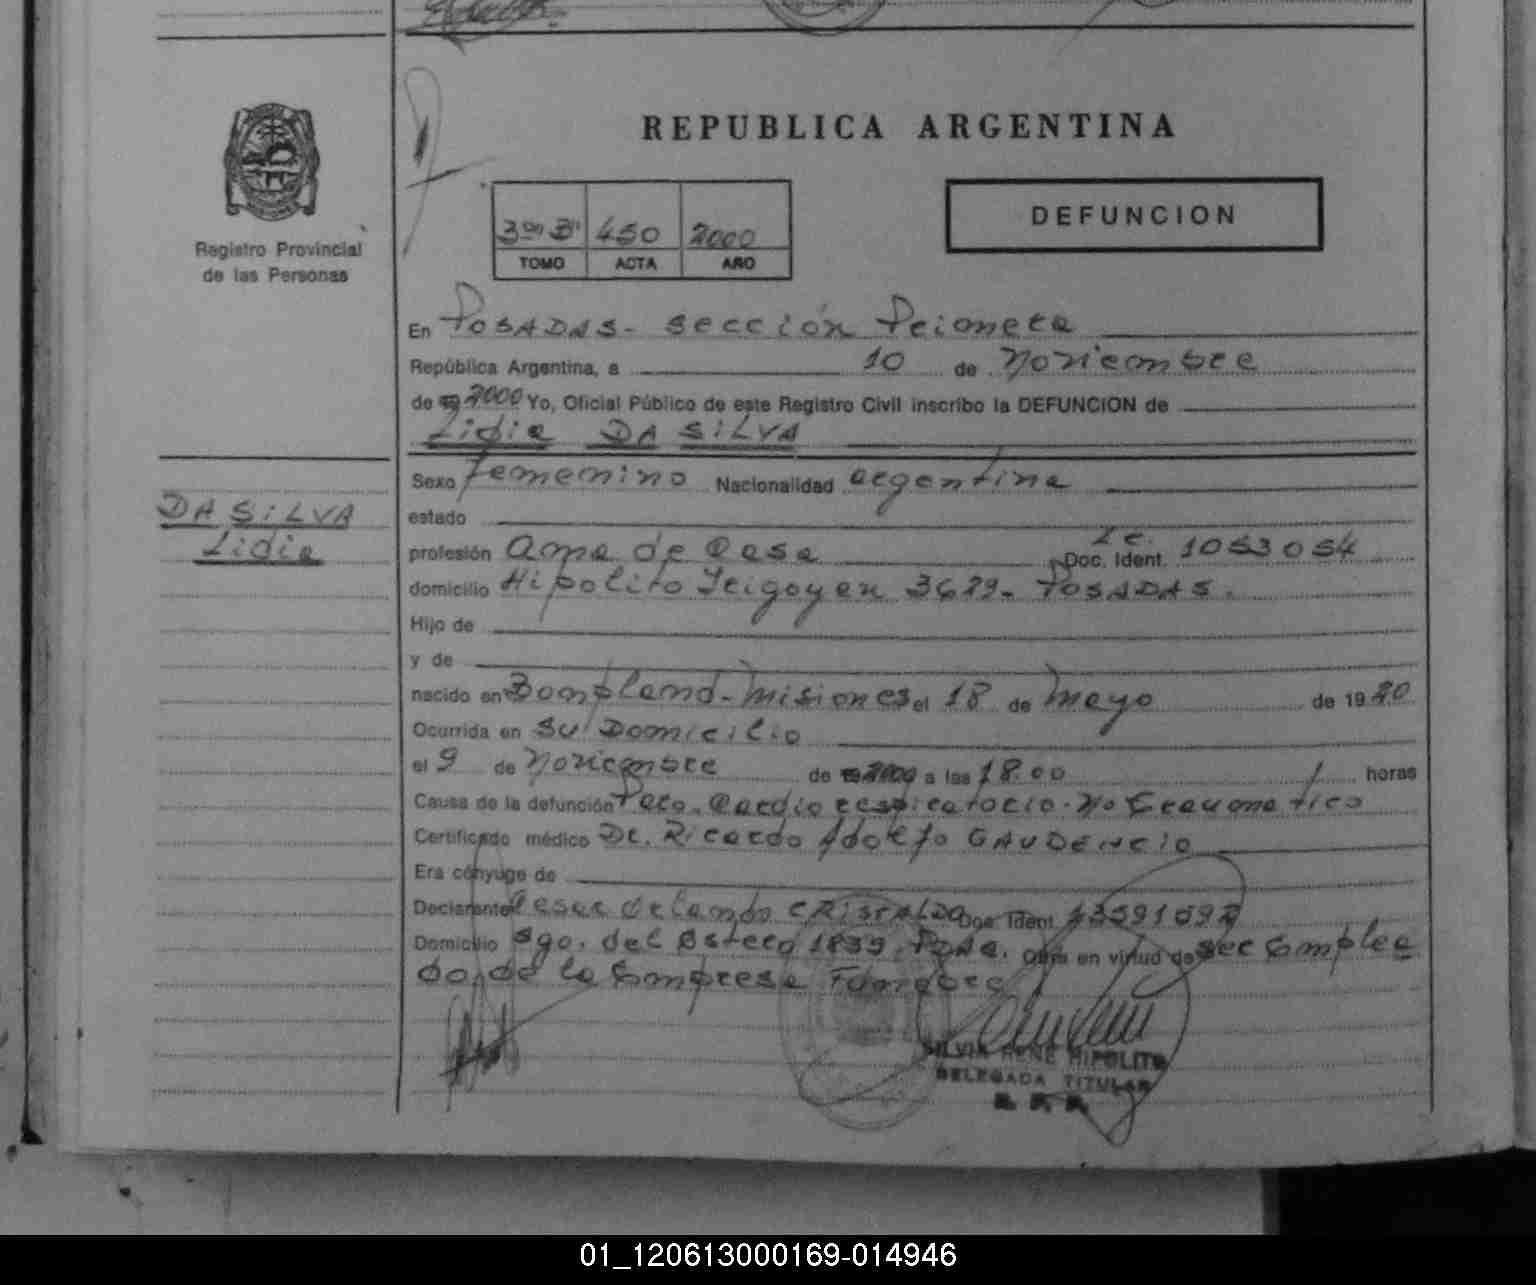 REPUBLICA ARGENTINA
Registro Provincial
de las Personas
3º "B" 450 2000
TOMO ACTA AÑO
DEFUNCION
En POSADAS - Sección Primera
República Argentina, a 10 de Noviembre
de 2000 Yo, Oficial Público de este Registro Civil inscribo la DEFUNCION de
Lidia DA SILVA
DA SILVA
Lidia
Sexo femenino Nacionalidad argentina
estado
profesión Ama de Casa Doc. Ident. L.C. 1053054
domicilio Hipolito Irigoyen 3679 - POSADAS.
Hijo de
y de
nacido en Bompland - Misiones el 18 de Mayo de 1920
Ocurrida en su Domicilio
el 9 de Noviembre de 2000 a las 18.00 horas
Causa de la defunción Paro. Cardiorrespiratorio. No traumatico
Certificado médico Dr. Ricardo Adolfo GAUDENCIO
Era cónyuge de
Declarante Cesar Orlando CRISTALDO Doc. Ident.
Domicilio Sgo. del Estero 1839. Pdas. Obra en virtud de ser Emplea
do de la Empresa Funebre
SILVIA RENE HIPOLITO
DELEGADA TITULAR
R. P. P.
01_120613000169-014946